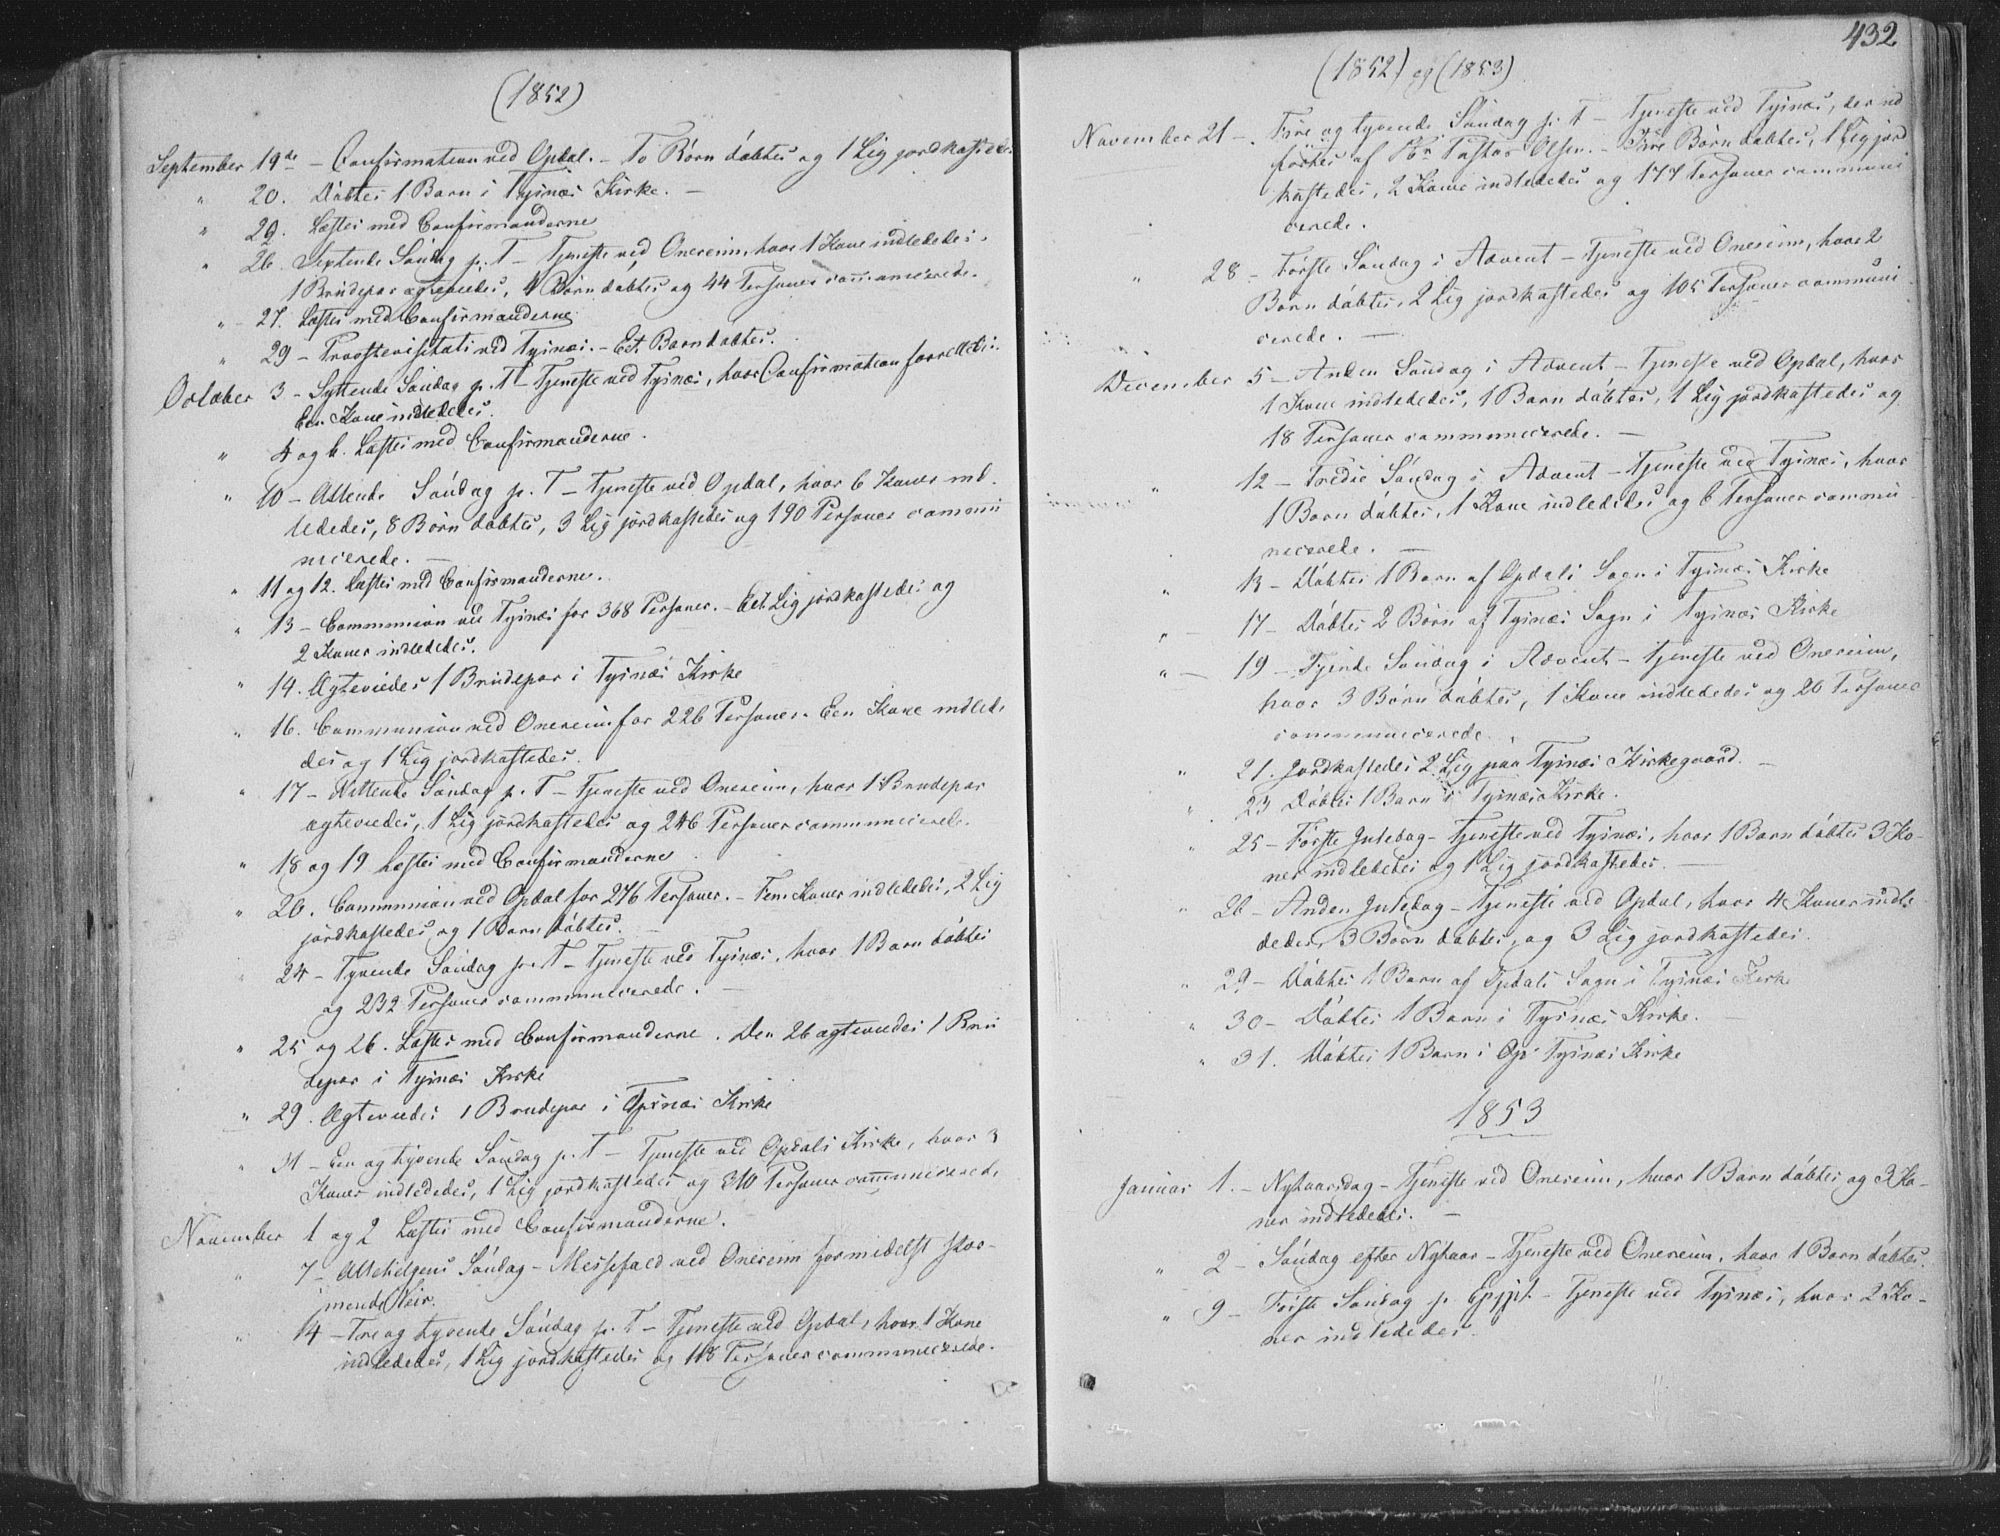 (1852)
September 19de – Confirmation ved Opdal. – To Børn døbtes og 1 Lig jordkastedes.
" 20. Døbtes 1 Barn i Tysnæs Kirke. –
" 22. Læstes med Confirmanderne
" 26. Sextende Søndag p. T – Tjeneste ved Onereim, hvor 1 Kone indlededes.
1 Brudepar ægteviedes, 4 Børn døbtes og 44 Personer communicerede.
" 27. Læstes med Confirmanderne
" 29 – Provstevisitats ved Tysnæs. – Et Barn døbtes.
October 3 – Syttende Søndag p. T – Tjeneste ved Tysnæs, hvor Confirmation forrettedes.
Een Kone indlededes.
" 4 og 6. Læstes med Confirmanderne.
" 10 – Attende Søndag p. T – Tjeneste ved Opdal, hvor 6 Koner ind-
lededes, 8 Børn døbtes, 3 Lig jordkastedes og 190 Personer commu
nicerede. –
" 11 og 12. Læstes med Confirmanderne.
" 13 – Communion ved Tysnæs for 368 Personer. – Eet Lig jordkastedes og
2 Koner indlededes.
" 14. Ægteviedes 1 Brudepar i Tysnæs Kirke
" 16. Communion ved Onereim for 226 Personer. Een Kone indlede
des og 1 Lig jordkastedes.
" 17 – Nittende Søndag p. T – Tjeneste ved Onereim, hvor 1 Brudepar
ægteviedes, 1 Lig jordkastedes og 246 Personer communicerede.
" 18 og 19 Læstes med Confirmanderne
" 20. Communion ved Opdal for 276 Personer. – Fem Koner indlededes, 2 Lig
jordkastedes og 1 Barn døbtes. –
" 24 – Tyvende Søndag p. T – Tjeneste ved Tysnæs, hvor 1 Barn døbtes
og 232 Personer communicerede. –
" 25 og 26. Læstes med Confirmanderne. Den 26 ægteviedes 1 Bru
depar i Tysnæs Kirke
" 29. Ægteviedes 1 Brudepar i Tysnæs Kirke
" 31 – Een og tyvende Søndag p. T – Tjeneste ved Opdals Kirke, hvor 3
Koner indlededes, 1 Lig jordkastedes og 310 Personer communicerede
November 1 og 2 Læstes med Confirmanderne.
" 7 – Allehelgens Søndag – Messefald ved Onereim formedelst stor-
mende Veir.
" 14 – Tre og tyvende Søndag p. T – Tjeneste ved Opdal, hvor 1 Kone
indlededes, 1 Lig jordkastedes og 118 Personer communicerede.
432
(1852) og (1853)
November 21 – Fire og tyvende Søndag p. T – Tjeneste ved Tysnæs, der ud
førtes af Hr Pastor Olsen. – Fire Børn døbtes, 1 Lig jord
kastedes, 2 Kone indlededes og 177 Personer communi
cerede.
" 28 – Første Søndag i Advent – Tjeneste ved Onereim, hvor 2
Børn døbtes, 2 Lig jordkastedes og 105 Personer communi
cerede. –
December 5 – Anden Søndag i Advent – Tjeneste ved Opdal, hvor
1 Kone indlededes, 1 Barn døbtes, 1 Lig jordkastedes og
18 Personer communicerede. –
" 12 – Tredie Søndag i Advent – Tjeneste ved Tysnæs, hvor
1 Barn døbtes, 1 Kone indlededes og 6 Personer commu
nicerede. –
" 13 – Døbtes 1 Barn af Opdals Sogn i Tysnæs Kirke
" – 17 – Døbtes 2 Børn af Tysnæs Sogn i Tysnæs Kirke
" – 19 – Fjerde Søndag i Advent – Tjeneste ved Onereim,
hvor 3 Børn døbtes, 1 Kone indlededes og 26 Personer
communicerede.
" 21. Jordkastedes 2 Lig paa Tysnæs Kirkegaard. –
" 23 Døbtes 1 Barn i Tysnæs Kirke.
" 25 – Første Juledag – Tjeneste ved Tysnæs, hvor 1 Barn døbtes 3 Ko-
ner indlededes og 1 Lig jordkastedes. –
" 26 – Anden Juledag – Tjeneste ved Opdal, hvor 4 Koner indle
dedes, 3 Børn døbtes, og 3 Lig jordkastedes.
" 29 – Døbtes 1 Barn af Opdals Sogn i Tysnæs Kirke
" 30 – Døbtes 1 Barn i Tysnæs Kirke. –
" 31. Døbtes 1 Barn i Op Tysnæs Kirke
1853
Januar 1. – Nytaarsdag – Tjeneste ved Onereim, hvor 1 Barn døbtes og 3 Ko-
ner indlededes. –
" 2 – Søndag efter Nytaar – Tjeneste ved Onereim, hvor 1 Barn døbtes.
" 9 – Første Søndag p. Epiph. – Tjeneste ved Tysnæs, hvor 2 Ko-
ner indlededes.